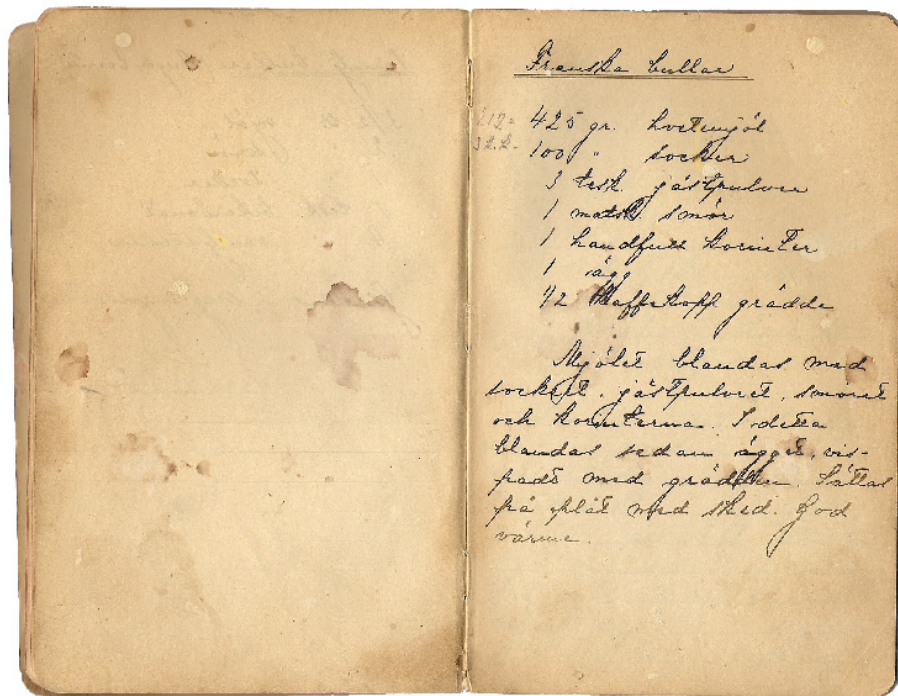 Franska bullar
425 gr. hvetemjöl
100 " socker
3 tesk. jästpulver
1 matsk. smör
1 handfull korinter
1 ägg
1/2 kaffekopp grädde
Mjölet blandas med
sockret, jästpulvret, smöret
och korinterna. I detta
blandas sedan ägget, vis-
padt med grädden. Sättas
på plåt med sked. God
värme.